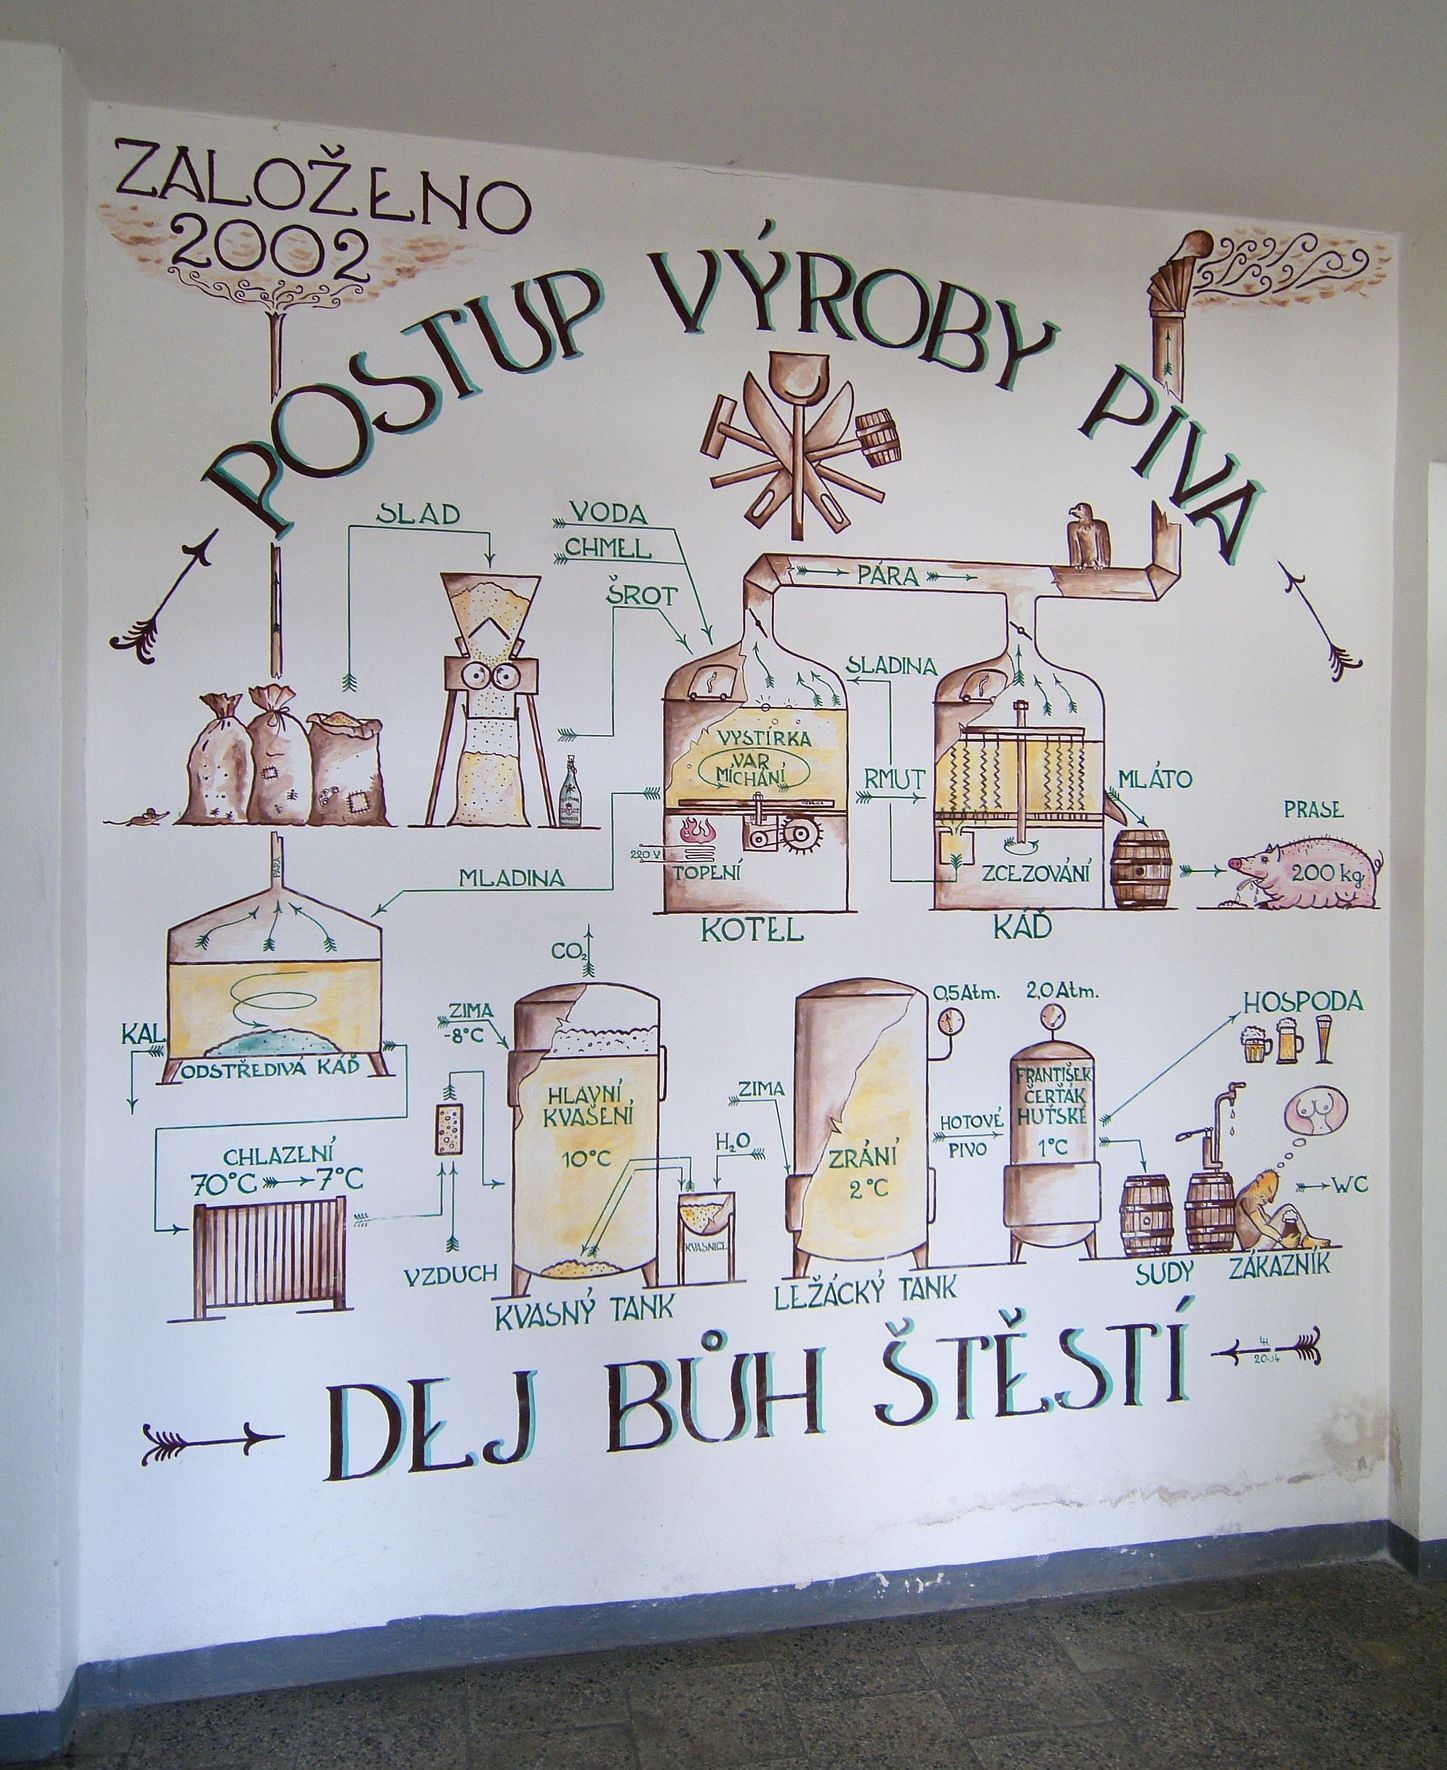 ZALOŽENO
2002
POSTUP VÝROBY PIVA
SLAD
VODA
CHMEL
ŠROT
PÁRA
SLADINA
VYSTÍRKA
VAR
MÍCHÁNÍ
RMUT
MLÁTO
PRASE
200 kg
220 V
TOPENÍ
ZCEZOVÁNÍ
KOTEL
KÁĎ
PÁRA
MLADINA
KAL
ODSTŘEDIVÁ KÁĎ
CO2
ZIMA
-8°C
HLAVNÍ
KVAŠENÍ
10°C
CHLAZENÍ
70°C 7°C
VZDUCH
KVASNÝ TANK
H2O
KVASNICE
ZIMA
ZRÁNÍ
2°C
LEŽÁCKÝ TANK
0,5 Atm.
2,0 Atm.
HOTOVÉ
PIVO
FRANTIŠEK
ČERŤÁK
HUŤSKÉ
1°C
HOSPODA
WC
SUDY
ZÁKAZNÍK
DEJ BŮH ŠTĚSTÍ
2004